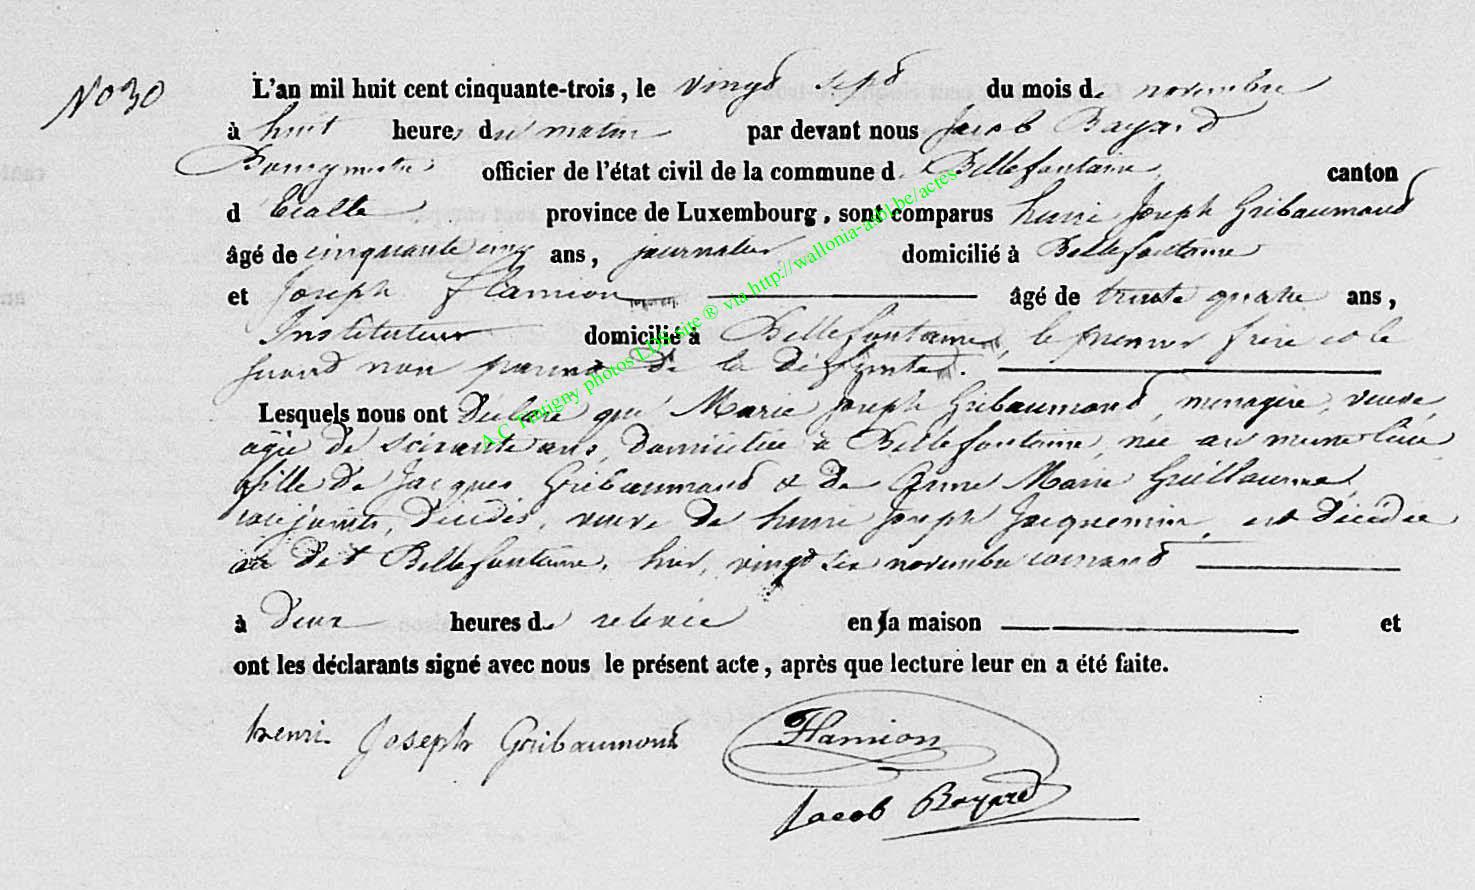 No 30
L'an mil huit cent cinquante-trois, le vingt sept du mois de novembre
à huit heures du matin par devant nous Jacob Bayard
Bourgmestre officier de l'état civil de la commune d Bellefontaine, canton
d Etalle province de Luxembourg, sont comparus henri Joseph Gribaumond
âgé de cinquante cinq ans, journalier domicilié à Bellefontaine
et Joseph Flamion âgé de trente quatre ans,
Instituteur domicilié à Bellefontaine, le premier frère et le
second non parent de la défunte.
Lesquels nous ont déclaré que Marie Joseph Gribaumond menagère, veuve,
agée de soixante ans, domiciliée à Bellefontaine, née au meme lieu,
fille de Jacques Gribaumond & de Anne Marie Guillaume
conjoints, décédés, veuve de henri Joseph Jacquemin, est décédée
au dit Bellefontaine, hier, vingt six novembre courant
à deux heures de relevée en la maison et
ont les déclarants signé avec nous le présent acte, après que lecture leur en a été faite.
henri Joseph Gribaumond Flamion
Jacob Bayard
A.C. Tintigny photos LDS site ® via http://wallonia-asbl.be/actes